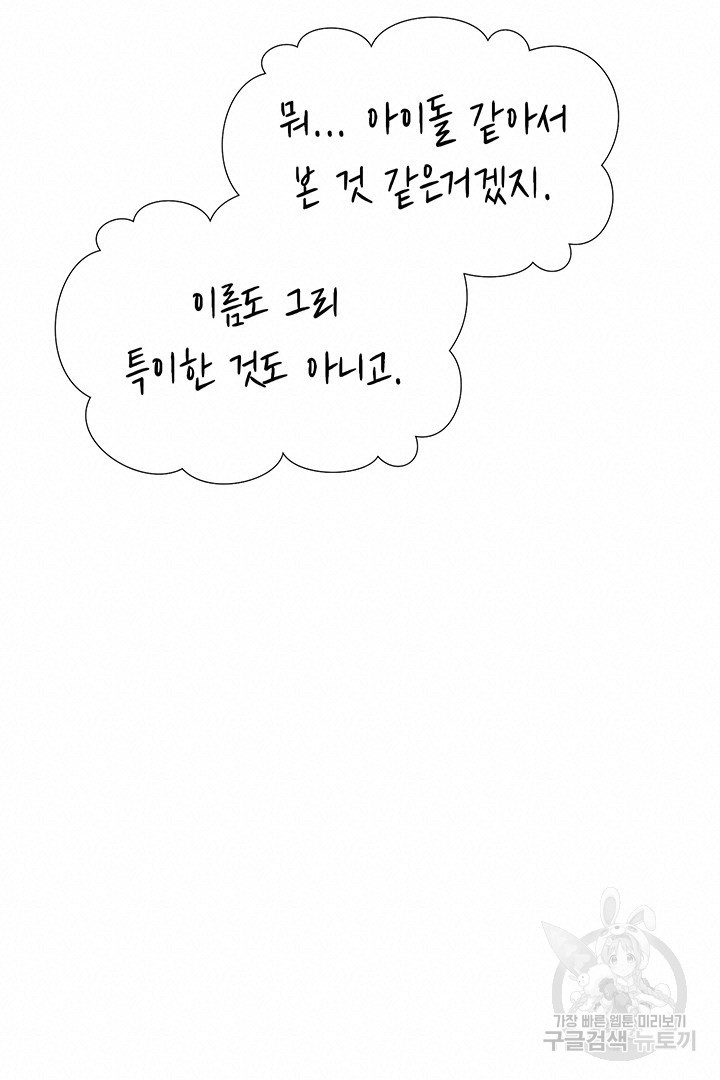 뭐... 아이돌 같아서
본 것 같은거겠지.
이름도 그리
특이한 것도 아니고.
가장 빠른 웹툰 미리보기
구글검색 뉴토끼